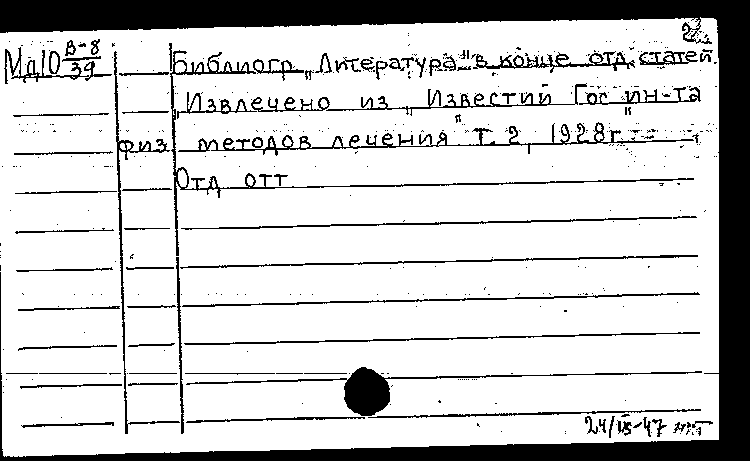 2
Мд10 В-8/39 Библиогр. „Литература" в конце отд. статей.
„Извлечено из „Известий Гос. ин-та
физ. методов лечения" Т. 2, 1928 г."
Отд. отт.
24/IX-47